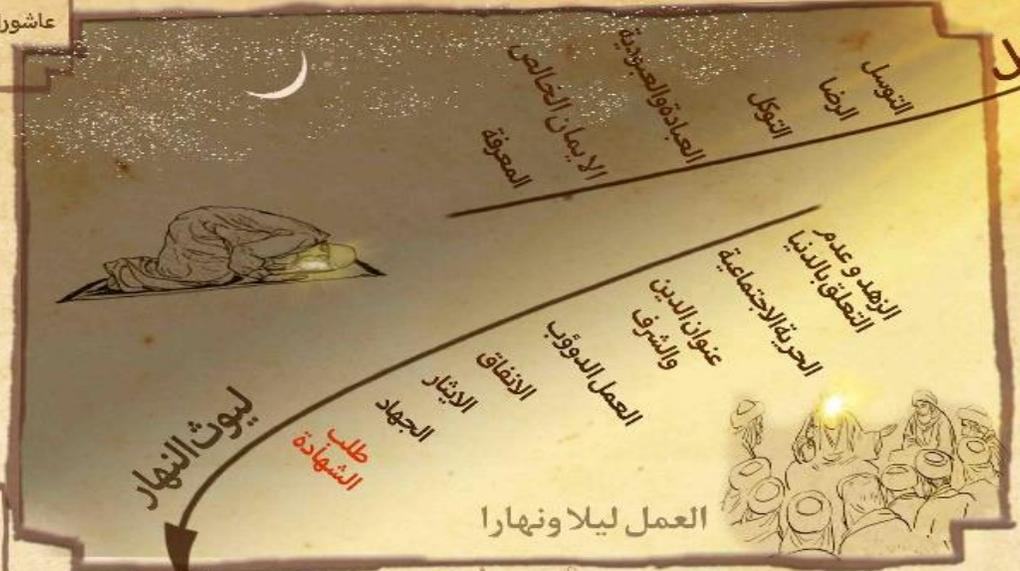 عاشور
ل
التوسل
الرضا
التوكل
العبادة والعبودية
الايمان الخالص
المعرفة
الزهد و عدم
التعلق بالدنيا
الحرية الاجتماعية
عنوان الدين
والشرف
العمل الدوؤب
الانفاق
الايثار
الجهاد
طلب
الشهادة
ليوث النهار
العمل ليلا ونهارا